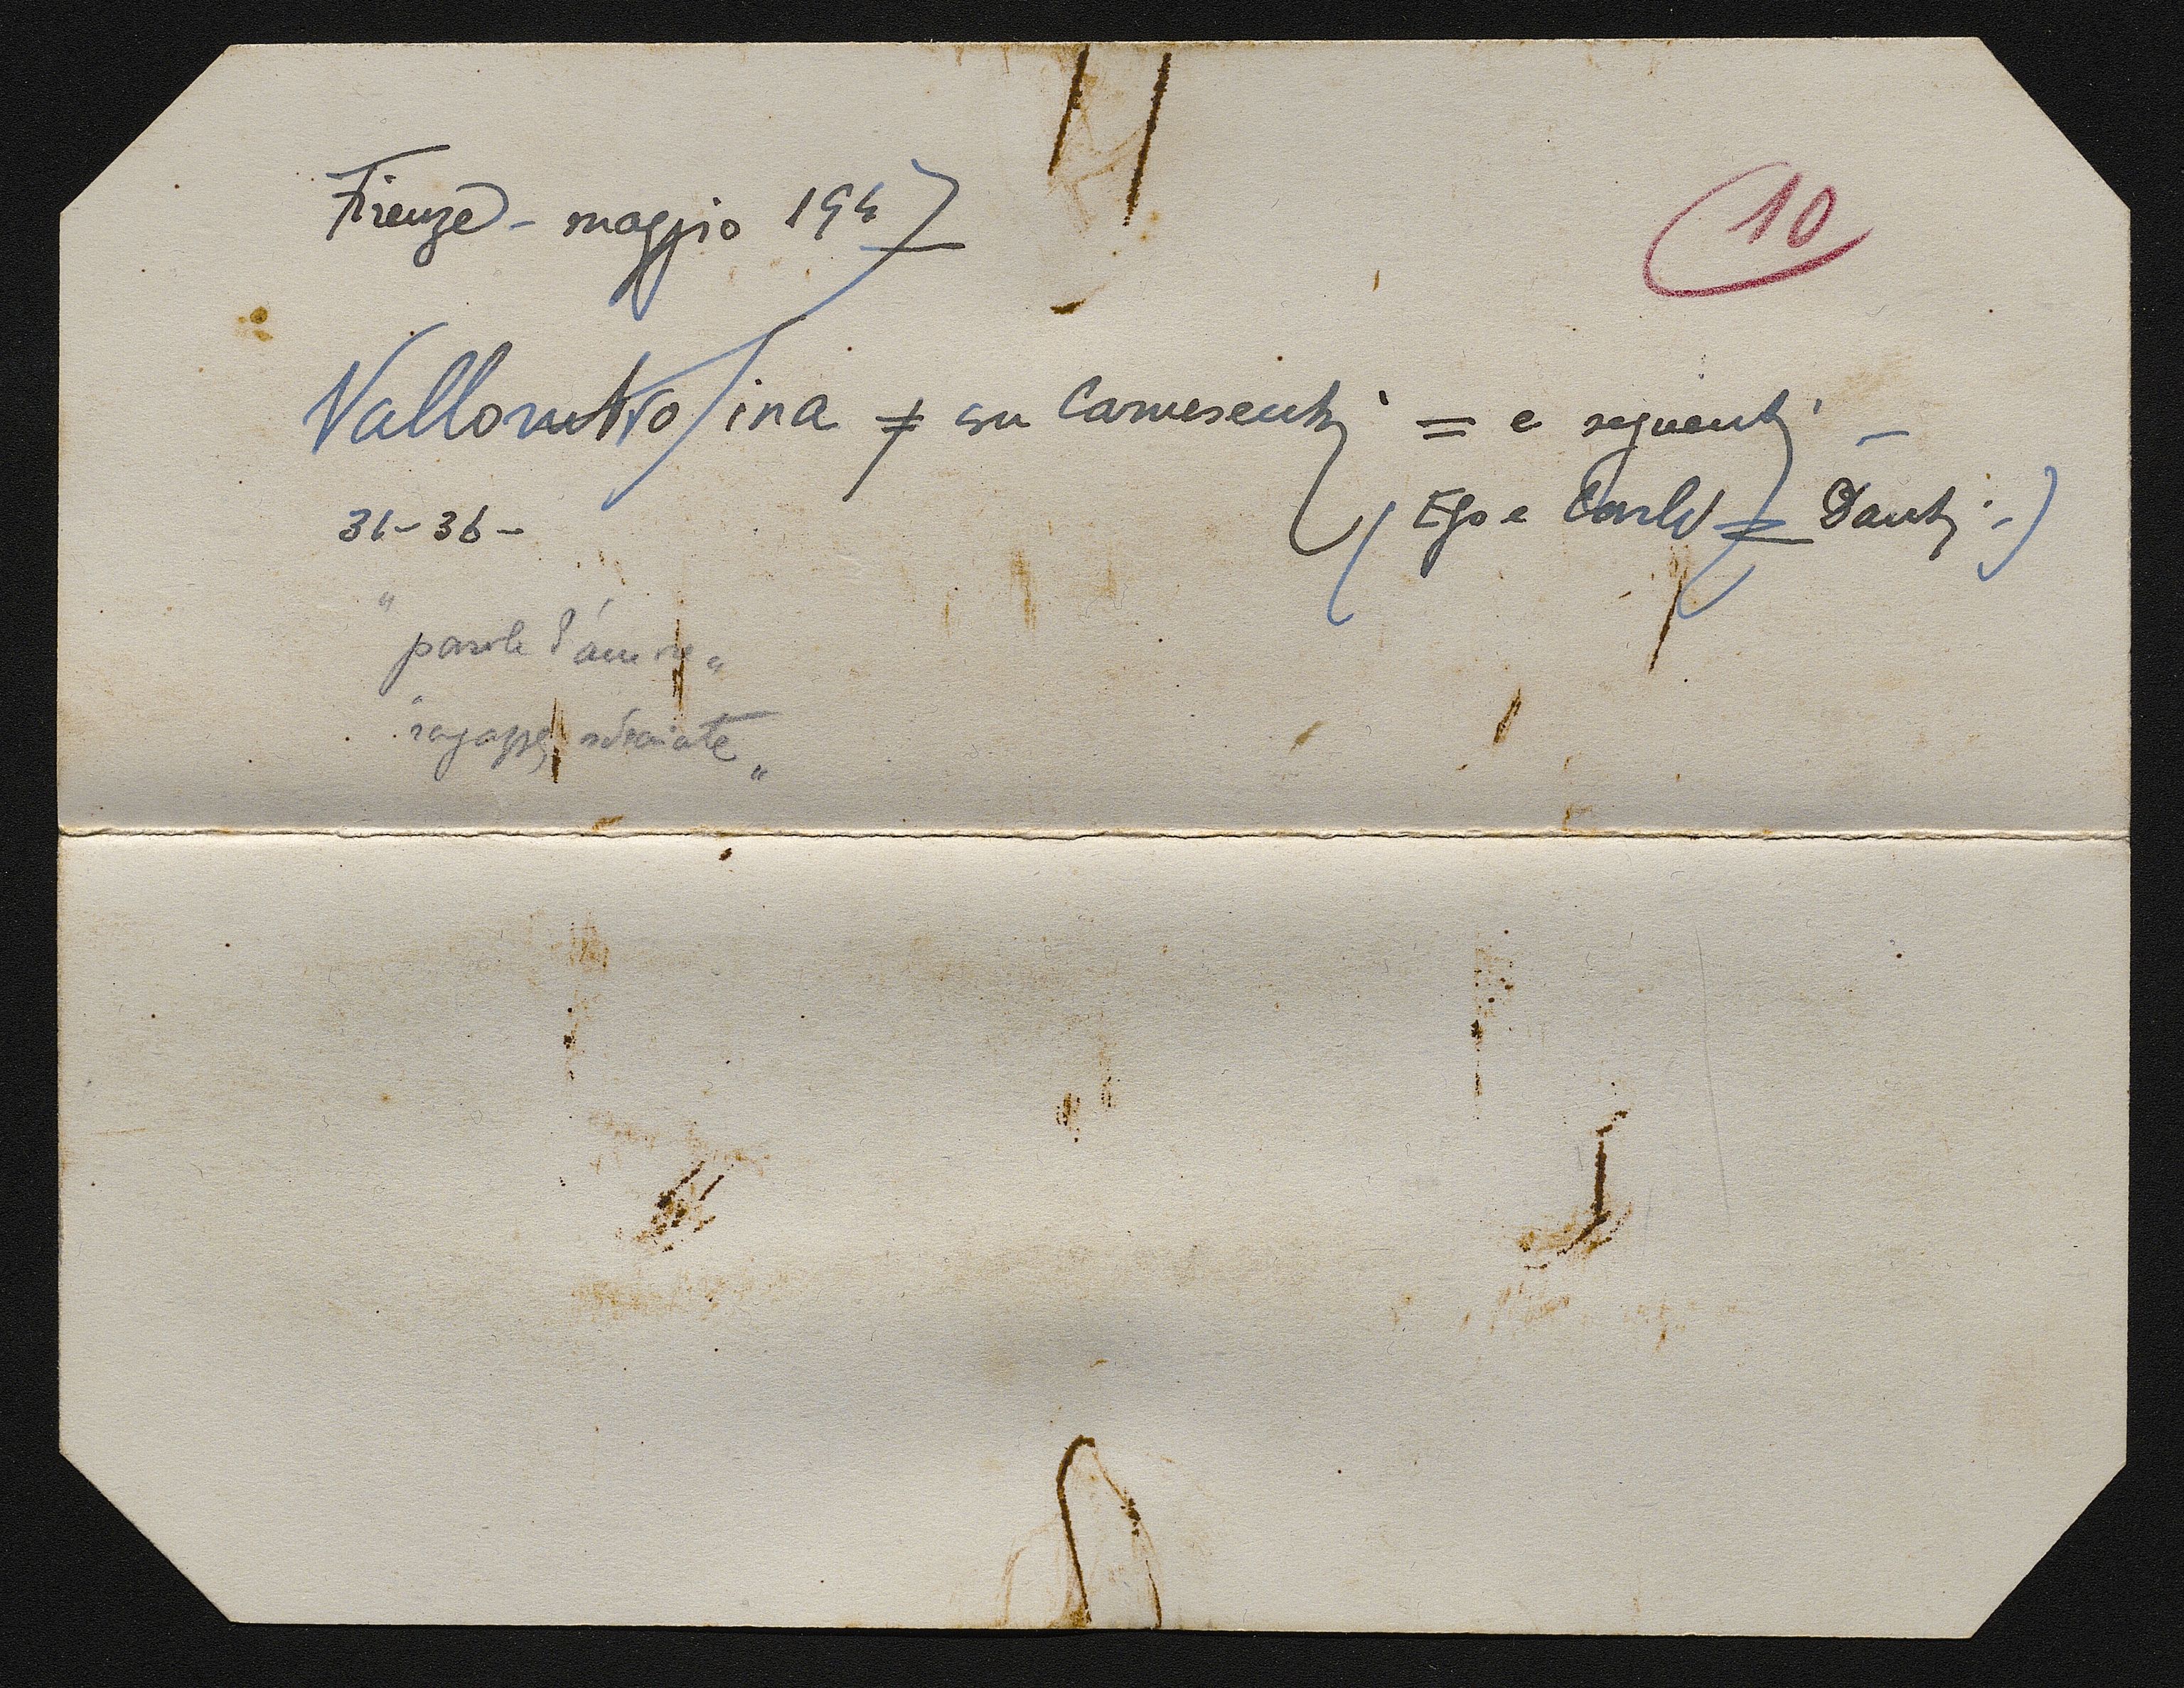 Firenze - maggio 1947
10
Vallombrosina = su Camesenti = e seguenti -
(Ego e Carlo = Danti -)
31-36-
"parole d'amore"
"ragazze sdraiate"